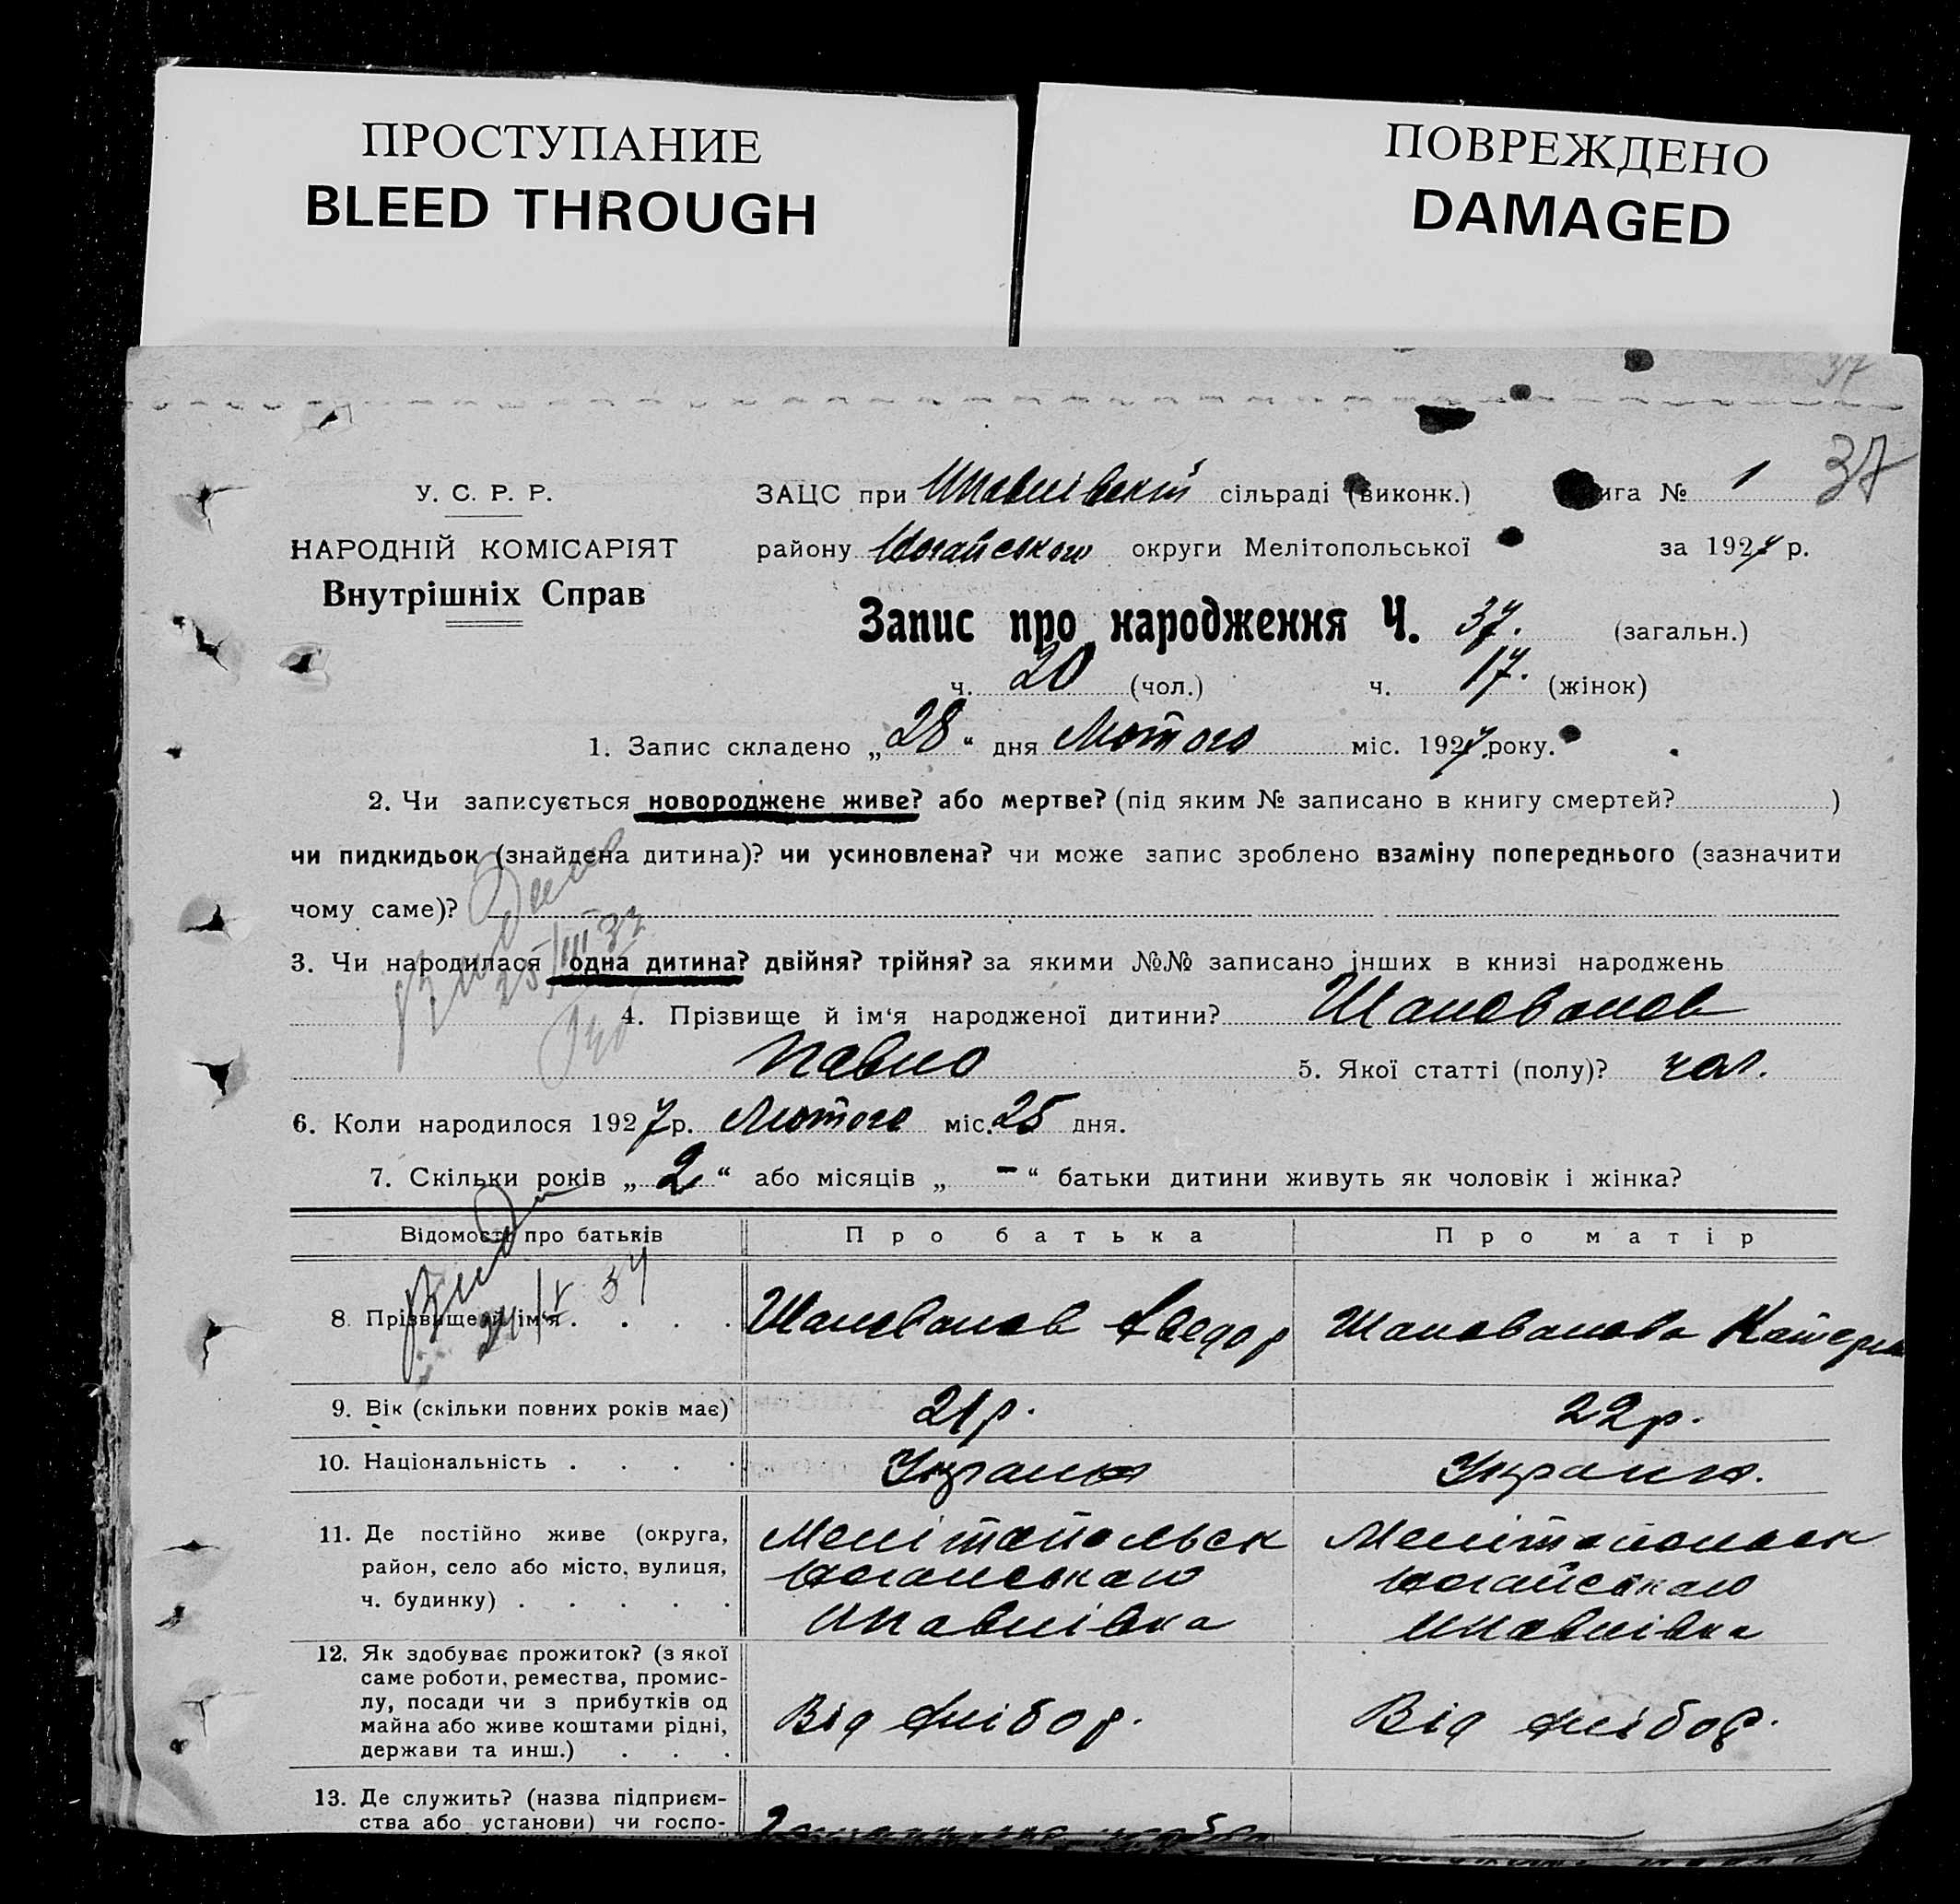 ПРОСТУПАНИЕ
BLEED THROUGH
ПОВРЕЖДЕНО
DAMAGED
37
37
У. С. Р. Р.
НАРОДНІЙ КОМІСАРІЯТ
Внутрішніх Справ
ЗАЦС при сільраді (виконк.) ига № 1
району Ногайського округи Мелітопольської за 1927 р.
Запис про народження Ч. 37. (загальн.)
ч. 20 (чол.) ч. 17. (жінок)
1. Запис складено „28“ дня Лютого міс. 1927 року.
2. Чи записується новороджене живе? або мертве? (під яким № записано в книгу смертей? )
чи пидкидьок (знайдена дитина)? чи усиновлена? чи може запис зроблено взаміну попереднього (зазначити
чому саме)?
3. Чи народилася одна дитина? двійня? трійня? за якими №№ записано інших в книзі народжень
4. Прізвище й ім‘я народженої дитини? Шаповалов
Павло 5. Якої статті (полу)? чол.
6. Коли народилося 1927 р. Лютого міс. 25 дня.
7. Скільки років „2“ або місяців „-“ батьки дитини живуть як чоловік і жінка?
Відомості про батьків Про батька Про матір
8 Прізвище й ім‘я . . . . Шаповалов Хведор Шаповалова Катерина
9. Вік (скільки повних років має) 21 р. 22 р.
10. Національність . . . . Україн. Україн.
11. Де постійно живе (округа, Мелітопольськ Мелітопольськ
район, село або місто, вулиця, Ногайського Ногайського
ч. будинку) . . . . .
12. Як здобуває прожиток? (з якої
саме роботи, ремества, промис-
лу, посади чи з прибутків од Від хлібор. Від хлібор.
майна або живе коштами рідні,
держави та инш.) . . .
13. Де служить? (назва підприєм-
ства або установи) чи госпо-